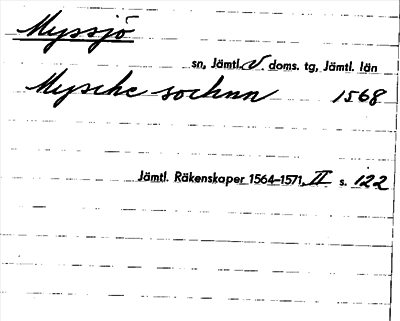 Myssjö
sn, Jämtl. V. doms. tg, Jämtl. län
Mysche sochnn 1568
Jämtl. Räkenskaper 1564-1571, II s. 122